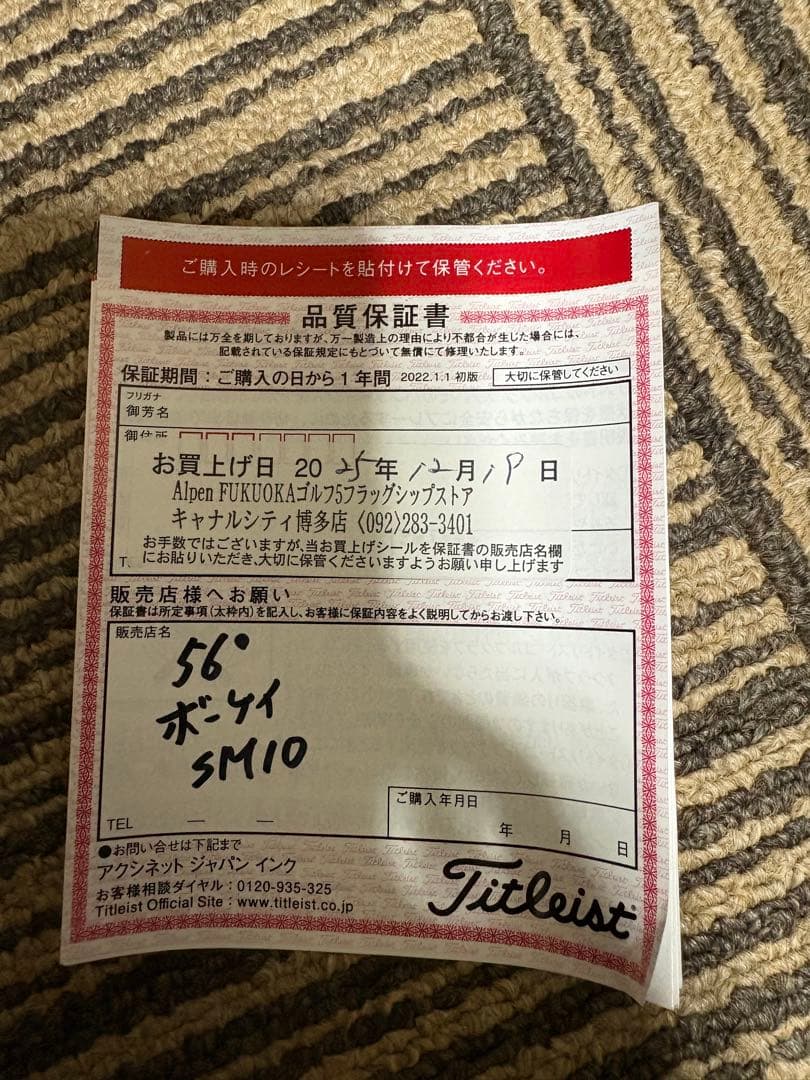 ご購入時のレシートを貼付けて保管ください。
品質保証書
製品には万全を期しておりますが、万一製造上の理由により不都合が生じた場合には、
記載されている保証規定にもとづいて無償にて修理いたします。
保証期間：ご購入の日から1年間 2022.1.1 初版 大切に保管してください
フリガナ
御芳名
御住所
お買上げ日 2025年12月19日
Alpen FUKUOKAゴルフ5フラッグシップストア
キャナルシティ博多店〈092〉283-3401
お手数ではございますが、当お買上げシールを保証書の販売店名欄
にお貼りいただき、大切に保管くださいますようお願い申し上げます
販売店様へお願い
保証書は所定事項(太枠内)を記入し、お客様に保証内容をよく説明してからお渡し下さい。
販売店名
56°
ボーケイ
SM10
TEL ー ー
ご購入年月日
年 月 日
●お問い合せは下記まで
アクシネット ジャパン インク
お客様相談ダイヤル：0120-935-325
Titleist Official Site：www.titleist.co.jp
Titleist